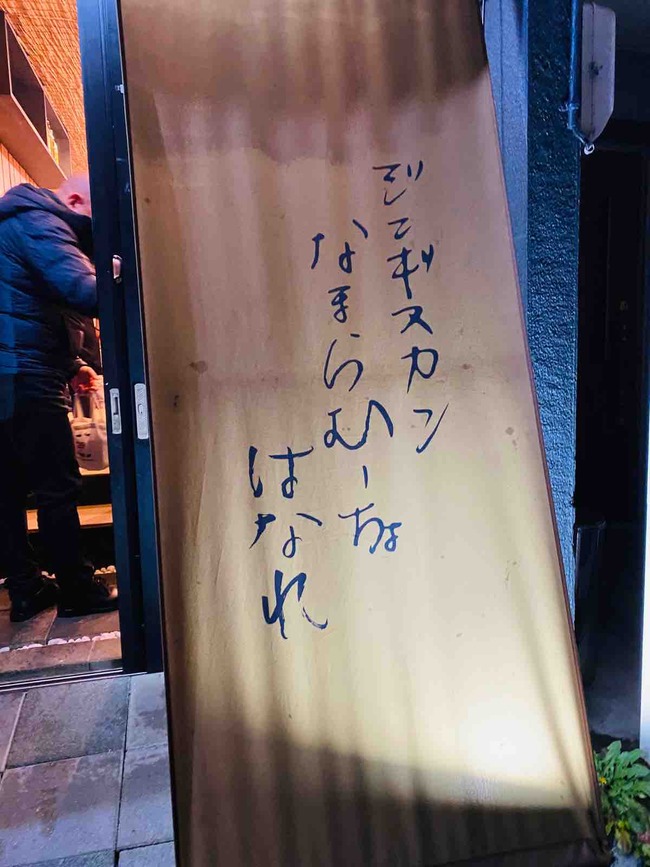 ジンギスカン
なまらむーちょ
はなれ